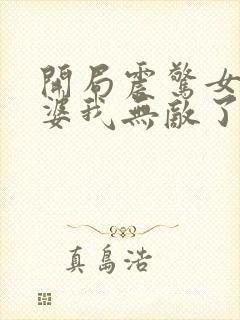 開局震驚女
婆我無敵了
真島浩